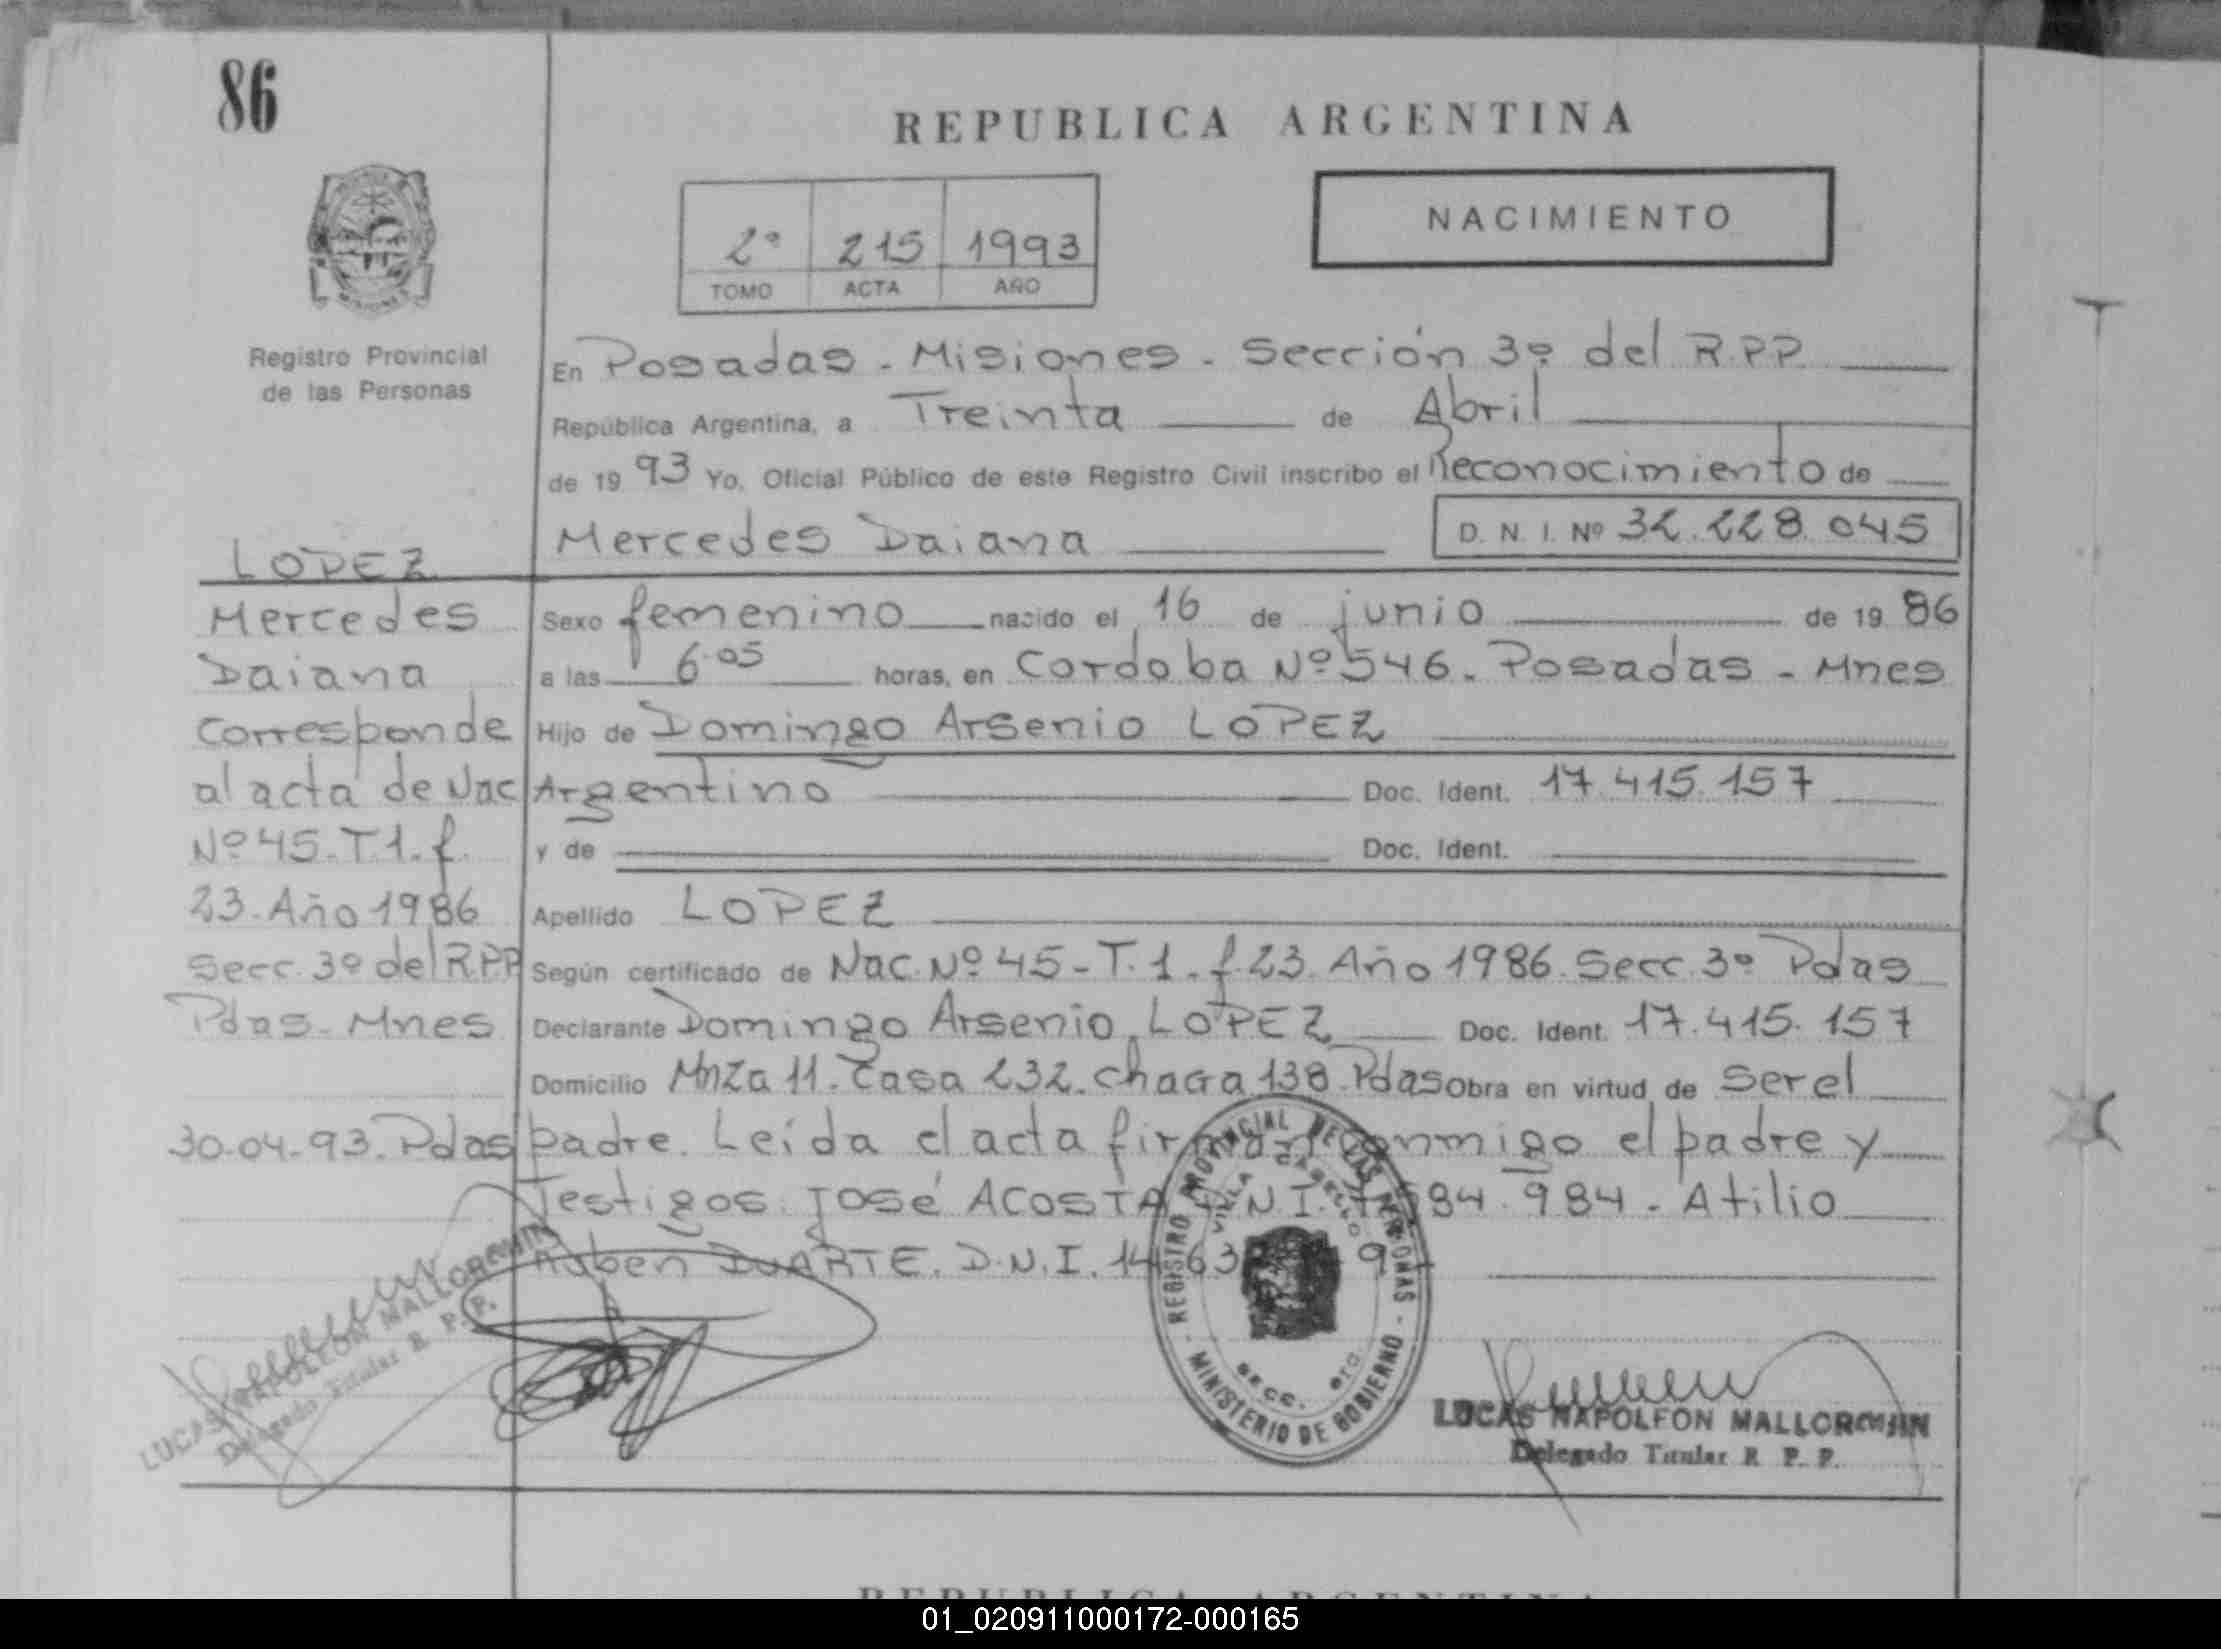 86
REPUBLICA ARGENTINA
NACIMIENTO
2º 215 1993
TOMO ACTA AÑO
Registro Provincial
de las Personas
En Posadas - Misiones - Sección 3º del R.P.P.
República Argentina, a Treinta de Abril
de 1993 Yo, Oficial Público de este Registro Civil inscribo el Reconocimiento de
Mercedes Daiana D. N. I. Nº 32.228.045
LOPEZ
Mercedes
Daiana
Corresponde
al acta de Nac
Nº 45-T.1.f.
23-Año 1986
Secc. 3º del R.P.P
Pdas-Mnes
30-04-93. Pdas
Sexo femenino nacido el 16 de junio de 1986
a las 6.05 horas, en Cordoba Nº 546. Posadas - Mnes
Hijo de Domingo Arsenio LOPEZ
Argentino Doc. Ident. 17.415.157
y de Doc. Ident.
Apellido LOPEZ
Según certificado de Nac. Nº 45-T.1.f.23. Año 1986. Secc. 3º Pdas
Declarante Domingo Arsenio LOPEZ Doc. Ident. 17.415.157
Domicilio Mnza 11. Casa 232. chaCra 138. Pdas Obra en virtud de Ser el
padre. Leída el acta firman conmigo el padre y
Testigos: José ACOSTA D.N.I. 984 - Atilio
Rubén DUARTE. D.N.I. 14.63
REGISTRO PROVINCIAL DE LAS PERSONAS
VILLA CABELLO
SECC. 3ra.
- MINISTERIO DE GOBIERNO -
LUCAS NAPOLEON
Delegado Titular R. P. P.
LUCAS NAPOLEON
Delegado Titular R. P. P.
REPUBLICA ARGENTINA
01_020911000172-000165